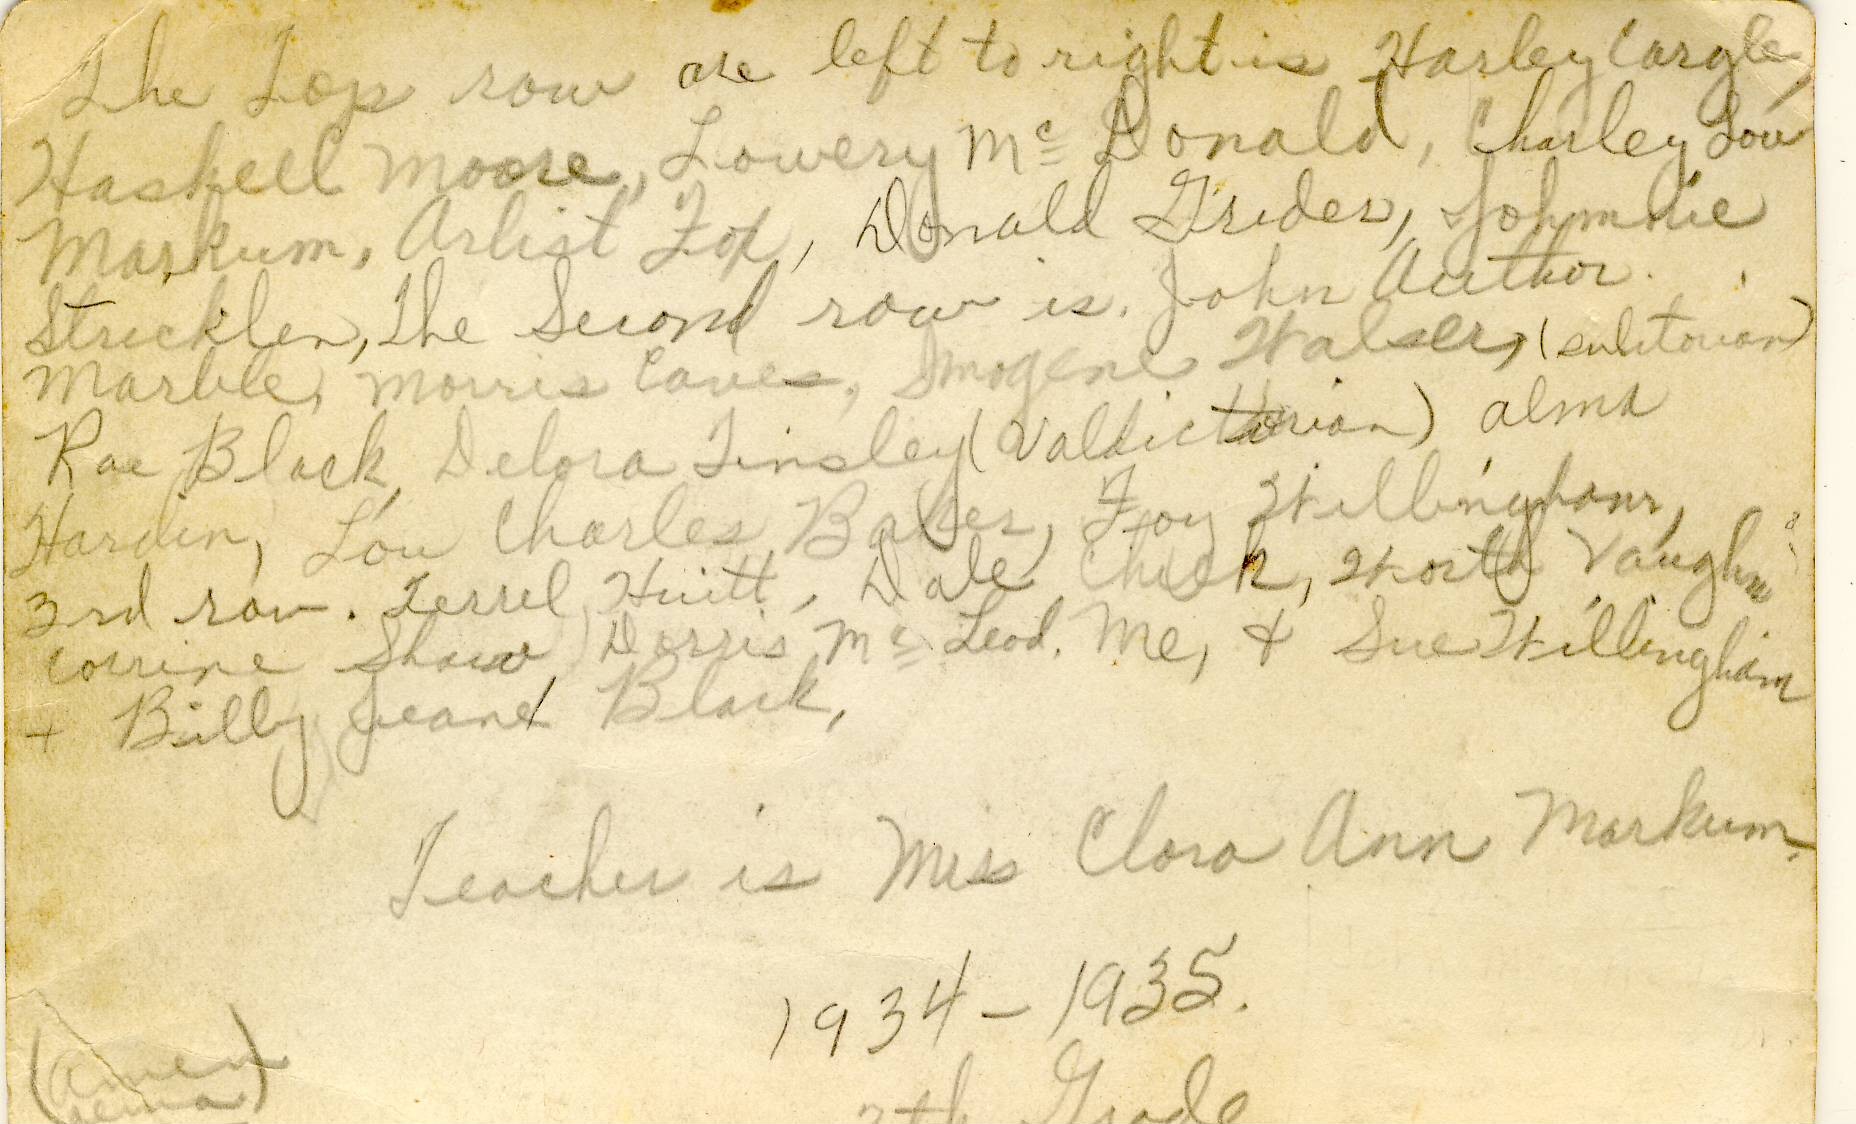 The Top row are left to right is Harley Cargle,
Haskell Moore, Lowery Mc Donald, Charley Lou
Markum, Arlist Fox, Donald Grider, Johnnie
Stricklen, The Second row is. John Author
Marble, Morris Eaves, Imogene Walser, (sulitorian)
Rae Black, Delora Tinsley (Valdictorian) alma
Hardin, Lou Charles Baker, Foy Willingham,
3rd row. Terrel Huitt, Dale Chick, Worth Vaughn
Corrine Shaw, Derris Mc Leod. Me, & Sue Willingham
+ Billy Jeane Black,
Teacher is Miss Clara Ann Markum.
1934-1935.
7th Grade